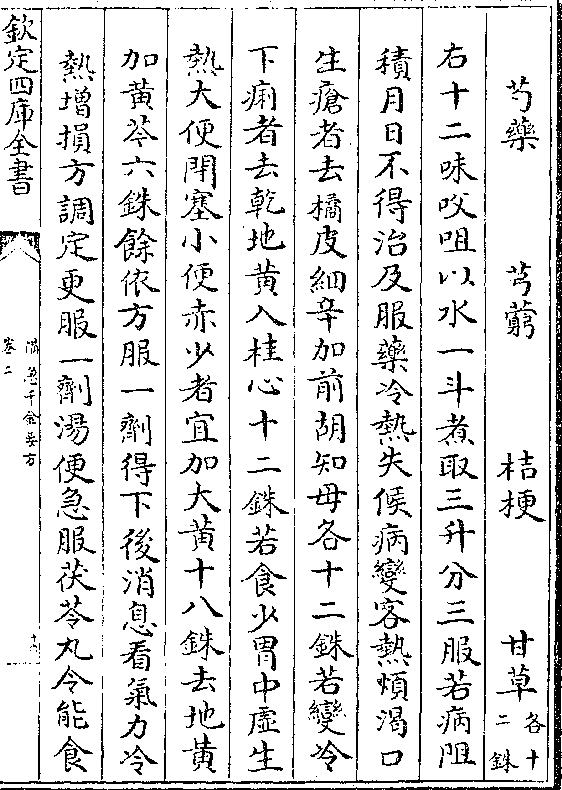 芍藥 芎藭 桔梗 甘草各十二銖
右十二味㕮咀以水一斗煮取三升分三服若病阻
積月日不得治及服藥冷熱失候病變客熱煩渴口
生瘡者去橘皮細辛加前胡知母各十二銖若變冷
下痢者去乾地黄入桂心十二銖若食少胃中虛生
熱大便閉塞小便赤少者宜加大黄十八銖去地黄
加黄芩六銖餘依方服一劑得下後消息看氣力冷
熱增損方調定更服一劑湯便急服茯苓丸令能食
欽定四庫全書
備急千金要方
卷二